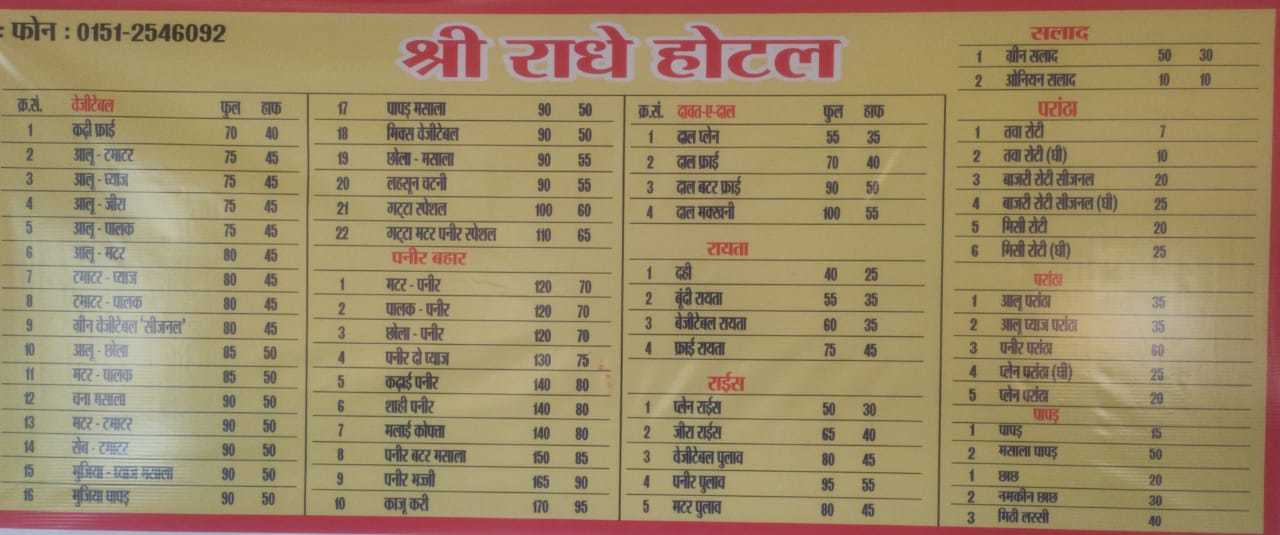 : फोन : 0151-2546092
श्री राधे होटल
क्र.सं. वेजीटेबल फुल हाफ
1 कढ़ी फ्राई 70 40
2 आलू - टमाटर 75 45
3 आलू - प्याज 75 45
4 आलू - जीरा 75 45
5 आलू - पालक 75 45
6 आलू - मटर 80 45
7 टमाटर - प्याज 80 45
8 टमाटर - पालक 80 45
9 ग्रीन वेजीटेबल 'सीजनल' 80 45
10 आलू - छोला 85 50
11 मटर - पालक 85 50
12 चना मसाला 90 50
13 मटर - टमाटर 90 50
14 सेव - टमाटर 90 50
15 भुजिया - प्याज मसाला 90 50
16 भुजिया पापड़ 90 50
17 पापड़ मसाला 90 50
18 मिक्स वेजीटेबल 90 50
19 छोला - मसाला 90 55
20 लहसून चटनी 90 55
21 गट्टा स्पेशल 100 60
22 गट्टा मटर पनीर स्पेशल 110 65
पनीर बहार
1 मटर - पनीर 120 70
2 पालक - पनीर 120 70
3 छोला - पनीर 120 70
4 पनीर दो प्याज 130 75
5 कढ़ाई पनीर 140 80
6 शाही पनीर 140 80
7 मलाई कोफ्ता 140 80
8 पनीर बटर मसाला 150 85
9 पनीर भुज्जी 165 90
10 काजू करी 170 95
क्र.सं. दावत-ए-दाल फुल हाफ
1 दाल प्लेन 55 35
2 दाल फ्राई 70 40
3 दाल बटर फ्राई 90 50
4 दाल मक्खनी 100 55
रायता
1 दही 40 25
2 बूंदी रायता 55 35
3 वेजीटेबल रायता 60 35
4 फ्राई रायता 75 45
राईस
1 प्लेन राईस 50 30
2 जीरा राईस 65 40
3 वेजीटेबल पुलाव 80 45
4 पनीर पुलाव 95 55
5 मटर पुलाव 80 45
सलाद
1 ग्रीन सलाद 50 30
2 ओनियन सलाद 10 10
परांठा
1 तवा रोटी 7
2 तवा रोटी (घी) 10
3 बाजरी रोटी सीजनल 20
4 बाजरी रोटी सीजनल (घी) 25
5 मिसी रोटी 20
6 मिसी रोटी (घी) 25
परांठा
1 आलू परांठा 35
2 आलू प्याज परांठा 35
3 पनीर परांठा 60
4 प्लेन परांठा (घी) 25
5 प्लेन परांठा 20
पापड़
1 पापड़ 15
2 मसाला पापड़ 50
1 छाछ 20
2 नमकीन छाछ 30
3 मिठी लस्सी 40